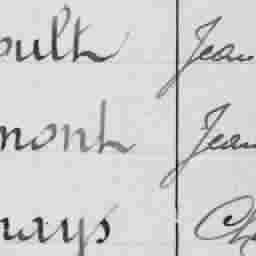 oult Jean
mont Jean
ways Ch